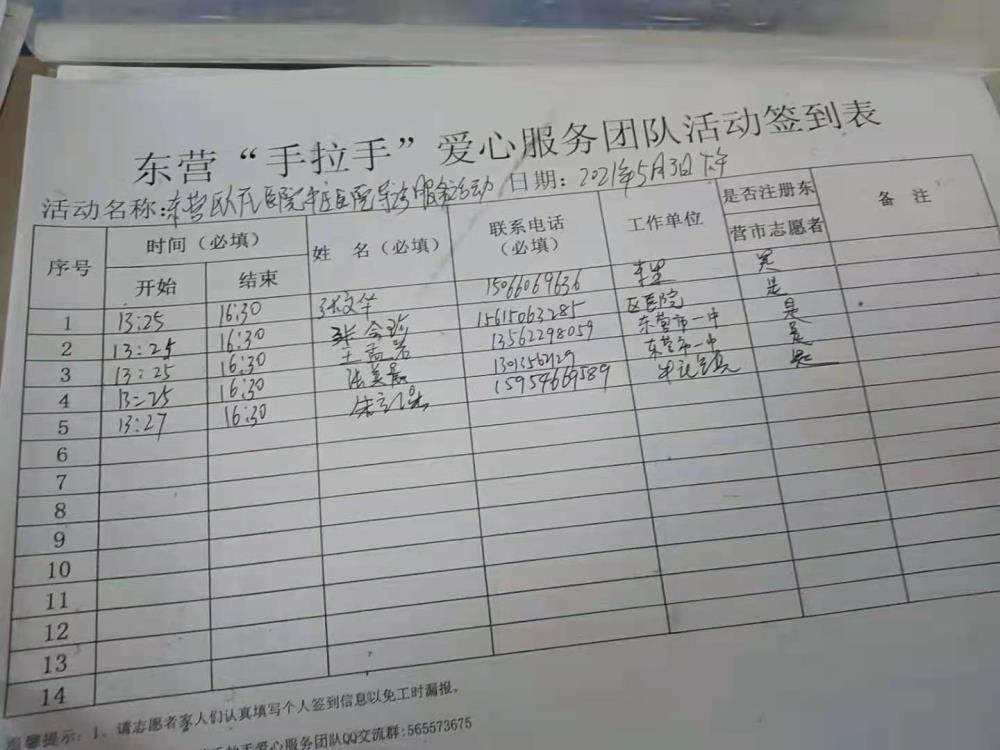 东营“手拉手”爱心服务团队活动签到表
活动名称:东营区人民医院 医院导诊服务活动 日期:2021年5月3日下午
序号 时间(必填) 姓 名(必填) 联系电话(必填) 工作单位 是否注册东营市志愿者 备 注
开始 结束
1 13:25 16:30 张文华 15066069636 是
2 13:25 16:30 张会 15615063285 区医院 是
3 13:25 16:30 王孟岩 13562298059 东营市一中 是
4 13:25 16:30 张美晨 东营市一中 是
5 13:27 16:30 朱 15954669589 是
6
7
8
9
10
11
12
13
14
温馨提示:1、请志愿者家人们认真填写个人签到信息以免工时漏报。
手拉手爱心服务团队QQ交流群:565573675